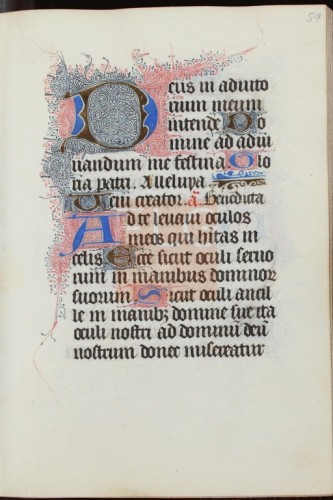 59
Deus in adiuto
rium meum
intende Do
mine ad adiu
uandum me festina Glo
ria patri. Alleluya.
Ueni creator. a. Benedicta
Ad te leuaui oculos
meos qui hitas in
celis Ecce sicut oculi seruo
rum in manibus dominor
suorum Sicut oculi ancil
le in manibz domine sue ita
oculi nostri ad dominū deū
nostrum donec misereatur